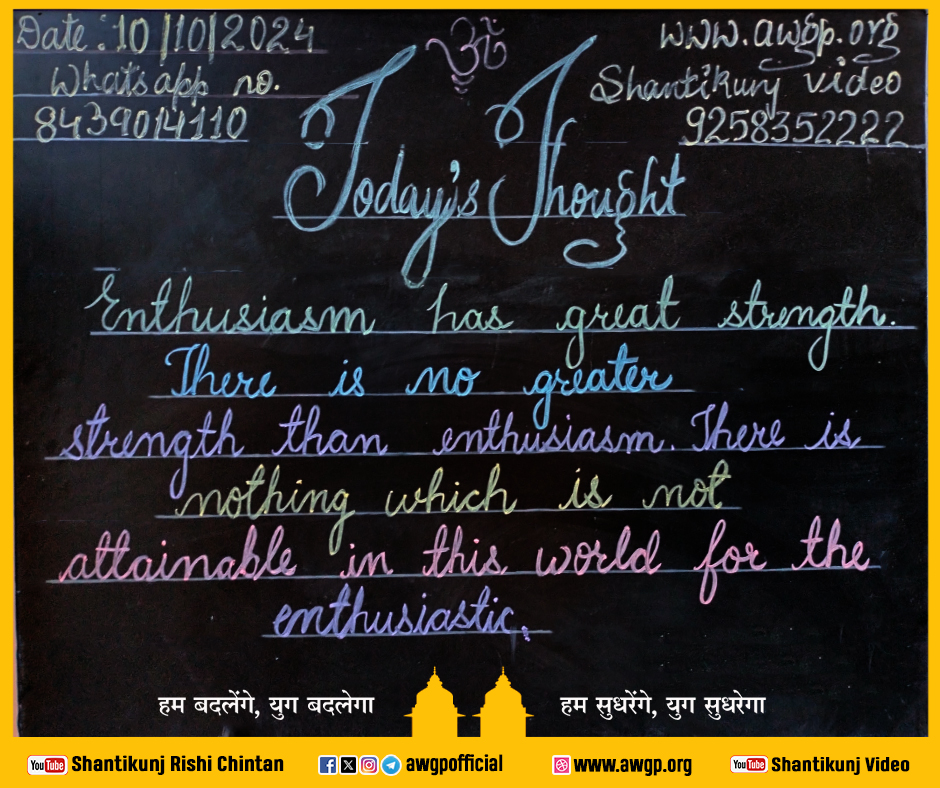 Date: 10/10/2024
ॐ
www.awgp.org
Whatsapp no.
Shantikunj video
8439014110
9258352222
Today's Thought
Enthusiasm has great strength.
There is no greater
strength than enthusiasm. There is
nothing which is not
attainable in this world for the
enthusiastic.
हम बदलेंगे, युग बदलेगा
हम सुधरेंगे, युग सुधरेगा
YouTube Shantikunj Rishi Chintan
awgpofficial
www.awgp.org
YouTube Shantikunj Video